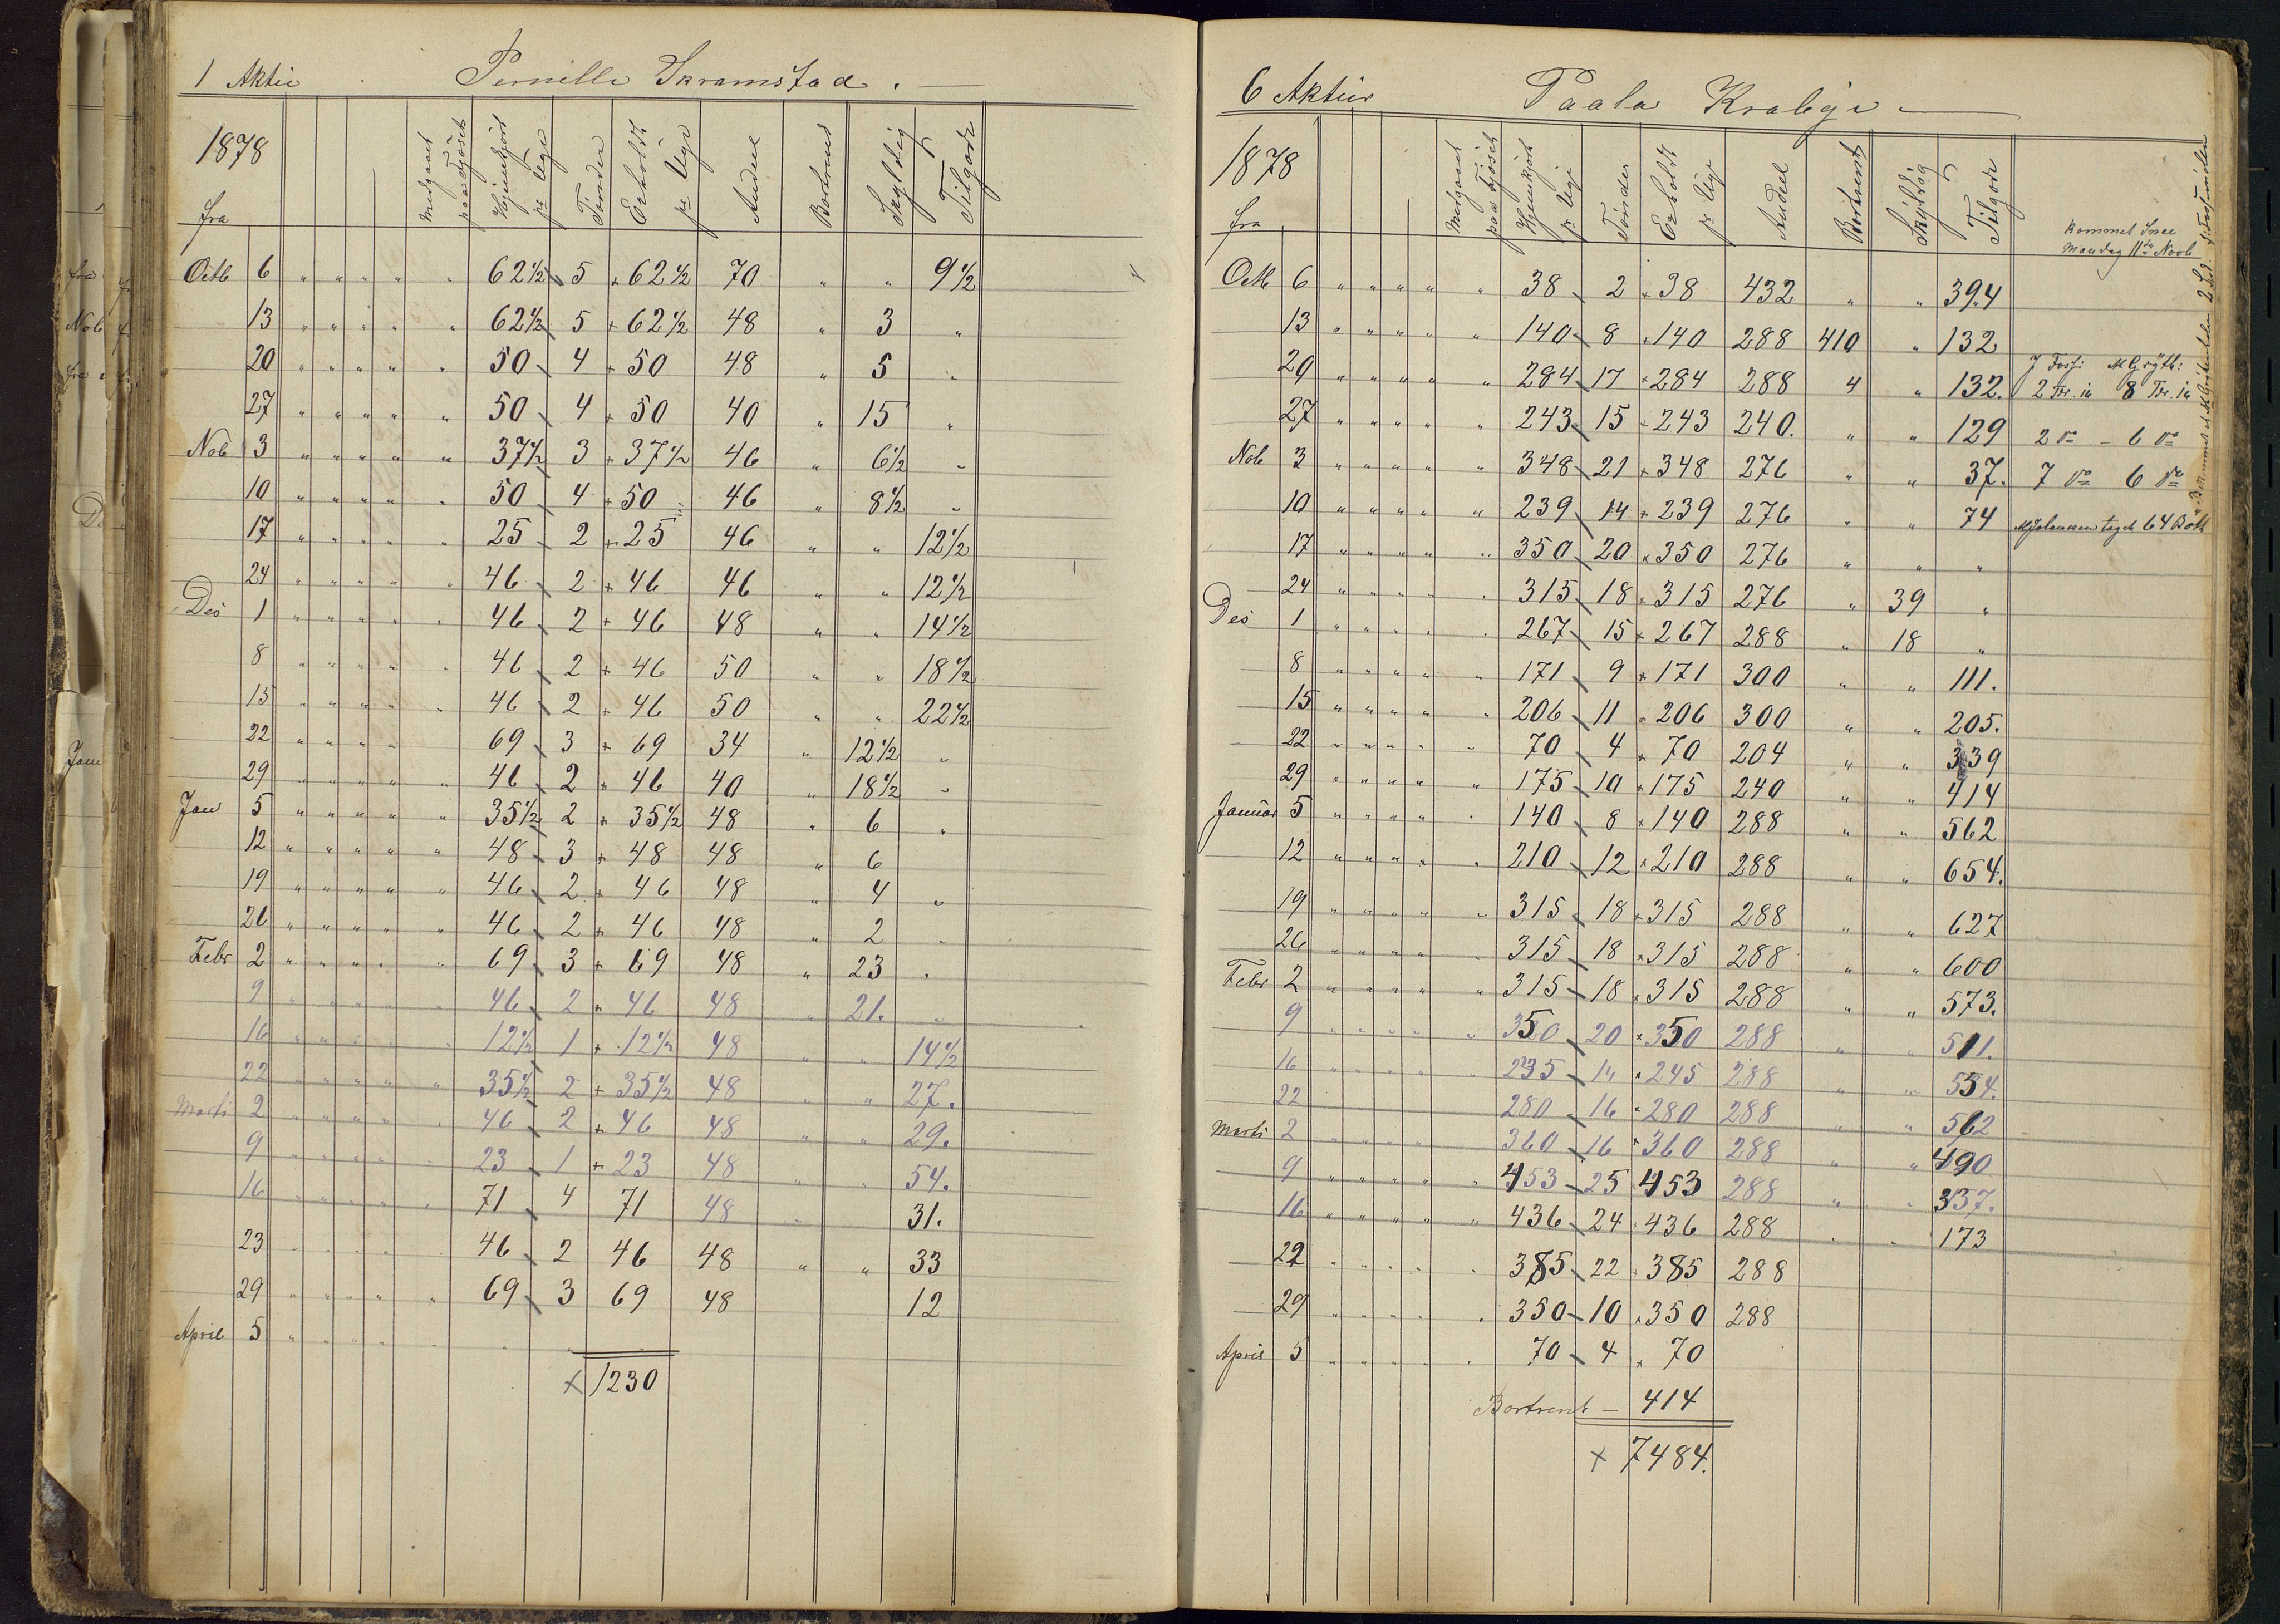 1 Aktie Pernille Skramstad. —
1878
fra
Medgaaet paa Fjöset
Hjemkjört pr Uge
Tönder
Erholdt pr Uge
Andeel
Bortrent
Skyldig
Tilgode
Octb 6 " " " " " 62½ 5 + 62½ 70 " " 9½
13 " " " " " 62½ 5 + 62½ 48 " 3 "
20 " " " " " 50 4 + 50 48 " 5 "
27 " " " " " 50 4 + 50 40 " 15 "
Nob 3 " " " " " 37½ 3 + 37½ 46 " 6½ "
10 " " " " " 50 4 + 50 46 " 8½ "
17 " " " " " 25 2 + 25 46 " " 12½
24 " " " " " 46 2 + 46 46 " " 12½
Des 1 " " " " " 46 2 + 46 48 " " 14½
8 " " " " " 46 2 + 46 50 " " 18½
15 " " " " " 46 2 + 46 50 " " 22½
22 " " " " 69 3 + 69 34 " 12½ "
29 " " " " " 46 2 + 46 40 " 18½ "
Jan 5 " " " " " 35½ 2 + 35½ 48 " 6 "
12 " " " " " 48 3 + 48 48 " 6
19 " " " " " 46 2 + 46 48 " 4 "
26 " " " " " 46 2 + 46 48 " 2 "
Febr 2 " " " " " 69 3 + 69 48 " 23 "
9 " " " " " 46 2 + 46 48 " 21. "
16 " " " " " 12½ 1 + 12½ 48 " " 14½
22 " " " " " 35½ 2 + 35½ 48 " " 27.
Marts 2 " " " " " 46 2 + 46 48 " " 29.
9 " " " " " 23 1 + 23 48 " " 54.
16 " " " " " 71 4 71 48 " 31.
23 " " " " " 46 2 46 48 " " 33
29 " " " " " 69 3 69 48 12
April 5 " " " " " "
× 1230
6 Aktier Paala Krabye —
1878
fra
Medgaaet paa Fjöset
Hjemkjört pr Uge
Tönder
Erholdt pr Uge
Andeel
Bortrent
Skyldig
Tilgode
Kommet Snee
Mandag 11te Novb
Octb 6 " " " " " 38 2 + 38 432 " " 394
13 " " " " " 140 8 + 140 288 410 " 132
20 " " " " " 284 17 + 284 288 4 " 132. 2 Tr. 8 Tr.
27 " " " " " 243 15 + 243 240. " " 129 2 do – 6 do
Nob 3 " " " " " 348 21 + 348 276 " " 37. 7 do 6 do
10 " " " " " 239 14 + 239 276 " " 74 64 Bött
17 " " " " " 350 20 + 350 276 " " "
24 " " " " " 315 18 + 315 276 " 39 "
Des 1 " " " " " 267 15 + 267 288 " 18 "
8 " " " " " 171 9 + 171 300 " " 111.
15 " " " " " 206 11 + 206 300 " " 205.
22 " " " " " 70 4 + 70 204 " " 339
29 " " " " " 175 10 + 175 240 " " 414
Januar 5 " " " " " 140 8 + 140 288 " " 562
12 " " " " " 210 12 + 210 288 " " 654.
19 " " " " " 315 18 + 315 288 " " 627
26 " " " " " 315 18 + 315 288 " " 600
Febr 2 " " " " " 315 18 + 315 288 " " 573.
9 " " " " " 350 20 + 350 288 " " 511.
16 " " " " " 235 14 + 245 288 " " 554.
22 280 16 + 280 288 " " 562
Marts 2 " " " " 360 16 + 360 288 " " 490
9 " " " " " 453 25 453 288 " " 337.
16 " " " " " 436 24 + 436 288 " " 173
22 " " " " " 385 22 + 385 288
29 " " " " " 350 10 + 350 288
April 5 " " " " " 70 4 + 70
Bortrent — 414
× 7484.